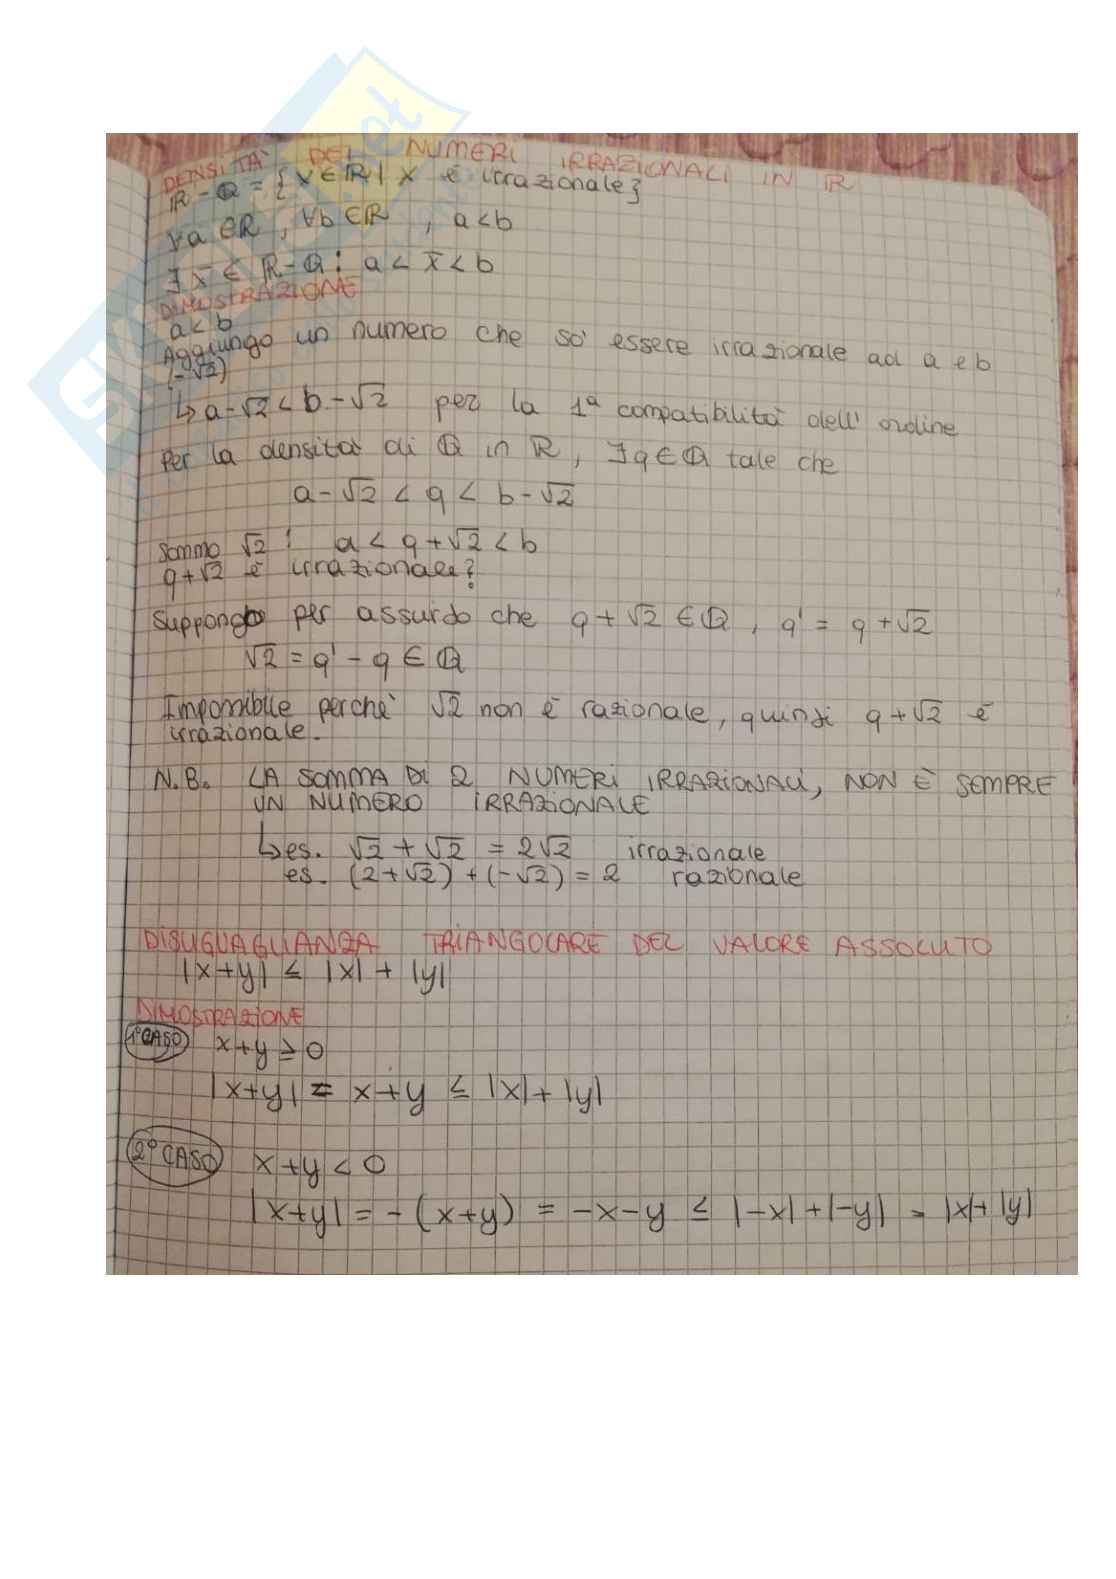 DENSITA' DEI NUMERI IRRAZIONALI IN ℝ
ℝ-ℚ = {x∈ℝ | x è irrazionale}
∀a∈ℝ, ∀b∈ℝ, a<b
∃x̄∈ℝ-ℚ: a<x̄<b
DIMOSTRAZIONE
a<b
Aggiungo un numero che so' essere irrazionale ad a e b
(-√2)
↳ a-√2 < b-√2 per la 1ª compatibilità dell' ordine
Per la densità di ℚ in ℝ, ∃q∈ℚ tale che
a-√2 < q < b-√2
Sommo √2: a < q+√2 < b
q+√2 è irrazionale?
Suppongo per assurdo che q+√2 ∈ℚ, q' = q+√2
√2 = q'-q ∈ ℚ
Impossibile perchè √2 non è razionale, quindi q+√2 è
irrazionale.
N.B. LA SOMMA DI 2 NUMERI IRRAZIONALI, NON È SEMPRE
UN NUMERO IRRAZIONALE
↳es. √2 + √2 = 2√2 irrazionale
es. (2+√2)+(-√2) = 2 razionale
DISUGUAGLIANZA TRIANGOLARE DEL VALORE ASSOLUTO
|x+y| ≤ |x| + |y|
DIMOSTRAZIONE
1° CASO x+y ≥ 0
|x+y| = x+y ≤ |x|+|y|
2° CASO x+y < 0
|x+y| = -(x+y) = -x-y ≤ |-x|+|-y| = |x|+|y|